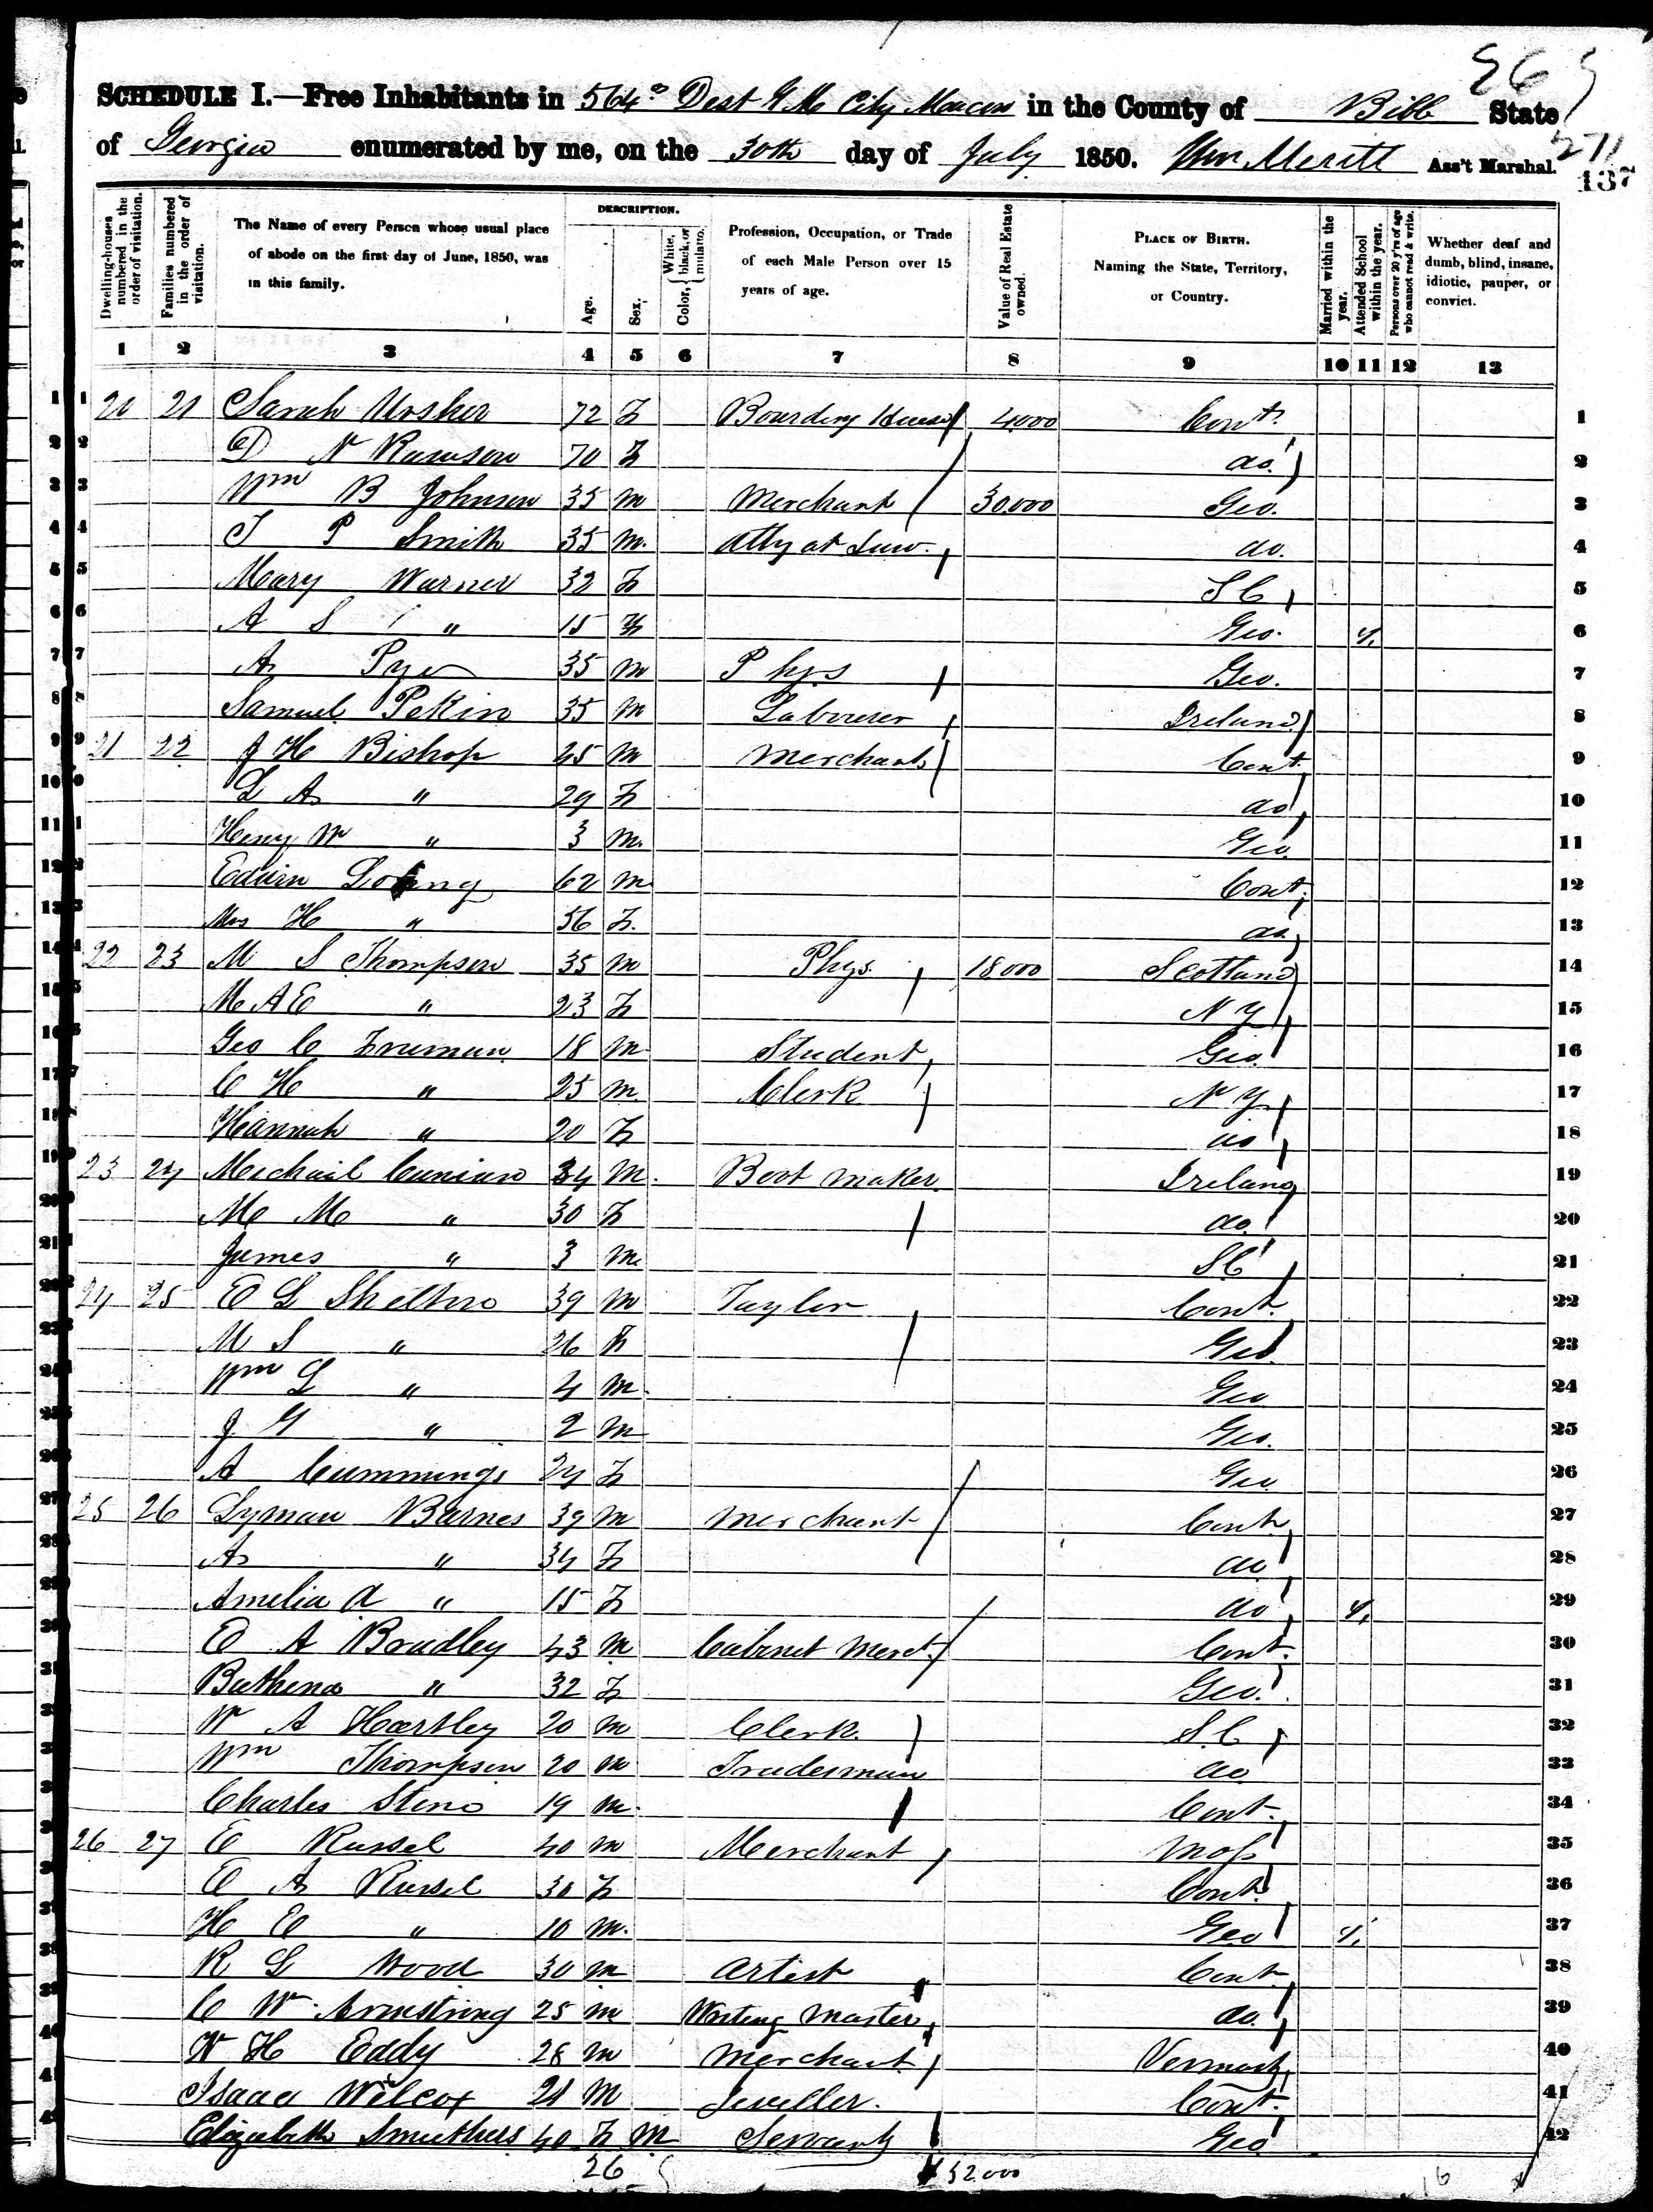 SCHEDULE I.—Free Inhabitants in 564 Dist G M City Macon in the County of Bibb State
of Georgia enumerated by me, on the 30th day of July 1850. Wm Meritt Ass't Marshal.
271
137
Dwelling-houses numbered in the order of visitation. Families numbered in the order of visitation. The Name of every Person whose usual place of abode on the first day of June, 1850, was in this family. DESCRIPTION. Age. Sex. Color, White, black, or mulatto. Profession, Occupation, or Trade of each Male Person over 15 years of age. Value of Real Estate owned. PLACE OF BIRTH. Naming the State, Territory, or Country. Married within the year. Attended School within the year. Persons over 20 y'rs of age who cannot read & write. Whether deaf and dumb, blind, insane, idiotic, pauper, or convict.
1 2 3 4 5 6 7 8 9 10 11 12 13
1 20 21 Sarah 72 F Boarding House 4000 Cont. 1
2 D N 70 F do. 2
3 Wm B Johnson 35 M Merchant 30.000 Geo. 3
4 J P Smith 35 M. Atty at Law. do. 4
5 Mary Warner 32 F S C 5
6 A S " 15 F Geo. 6
7 A 35 M Phys Geo. 7
8 Samuel Pekin 35 M Labourer Ireland 8
9 21 22 J H Bishop 45 M Merchant Cont. 9
10 L A " 29 F do 10
11 Henry W " 3 M. Geo. 11
12 Edwin 62 M Cont. 12
13 Mrs H " 56 F. do. 13
14 22 23 M S Thompson 35 M Phys. 18000 Scotland 14
15 M A E " 23 F N Y 15
16 Geo C Freeman 18 M Student Geo. 16
17 C H " 25 M Clerk N Y 17
18 Hannah " 20 F do 18
19 23 24 Michail 34 M. Boot maker Ireland 19
20 M M " 30 F do. 20
21 James " 3 M. S C 21
22 24 25 E L Shelton 39 M Taylor Cont. 22
23 M S " 26 F Geo. 23
24 Wm L " 4 M. Geo 24
25 J G " 2 M Geo. 25
26 A Cummings 24 F Geo 26
27 25 26 Lyman Barnes 39 M Merchant Cont 27
28 A " 34 F do 28
29 Amelia A " 15 F do 29
30 E A Bradley 43 M Cabinet Merct. Cont. 30
31 Bathena " 32 F Geo. 31
32 W A Hartley 20 M Clerk. S.C 32
33 Wm Thompson 20 M Tradesman do 33
34 Charles 19 M. Cont. 34
35 26 27 E Russel 40 M Merchant Mass 35
36 E A Russel 30 F Cont. 36
37 H E " 10 M. Geo 37
38 R L Wood 30 M Artist Cont 38
39 C W Armstrong 25 M Writing Master do. 39
40 W H Eddy 28 M Merchant Vermont 40
41 Isaac Wilcox 21 M Jeweller. Cont. 41
42 Elizabeth Smithers 40 F M Servant Geo 42
26 52.000